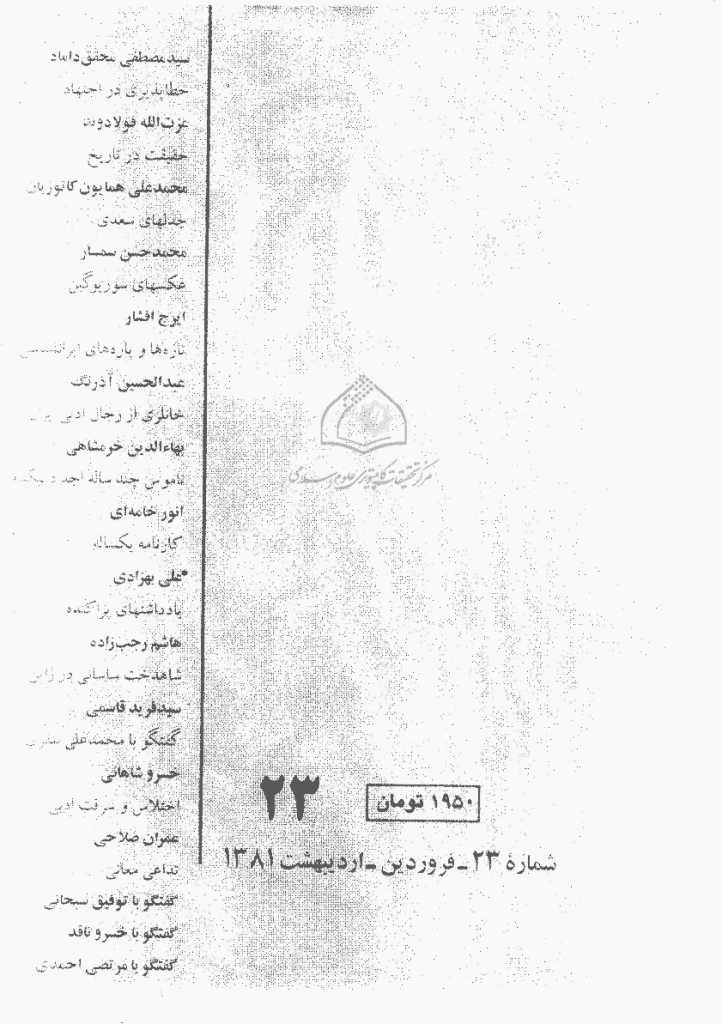 سیدمصطفی محقق‌داماد
خطاپذیری در اجتهاد
عزت‌الله فولادوند
حقیقت در تاریخ
محمدعلی همایون کاتوزیان
جدلهای سعدی
محمدحسن سمسار
عکسهای سوریوگین
ایرج افشار
تازه‌ها و پاره‌های ایرانشناسی
عبدالحسین آذرنگ
خانلری از رجال ادبی
بهاءالدین خرمشاهی
ناموس چند ساله
انور خامه‌ای
کارنامه یکساله
علی بهزادی
یادداشتهای پراکنده
هاشم رجب‌زاده
شاهدخت ساسانی در ژاپن
سیدفرید قاسمی
گفتگو با محمدعلی سفری
خسرو شاهانی
اختلاس و سرقت ادبی
عمران صلاحی
تداعی معانی
گفتگو با توفیق سبحانی
گفتگو با خسرو ناقد
گفتگو با مرتضی احمدی
مرکز تحقیقات کامپیوتری علوم اسلامی
۲۳
۱۹۵۰ تومان
شمارهٔ ۲۳ ـ فروردین ـ اردیبهشت ۱۳۸۱